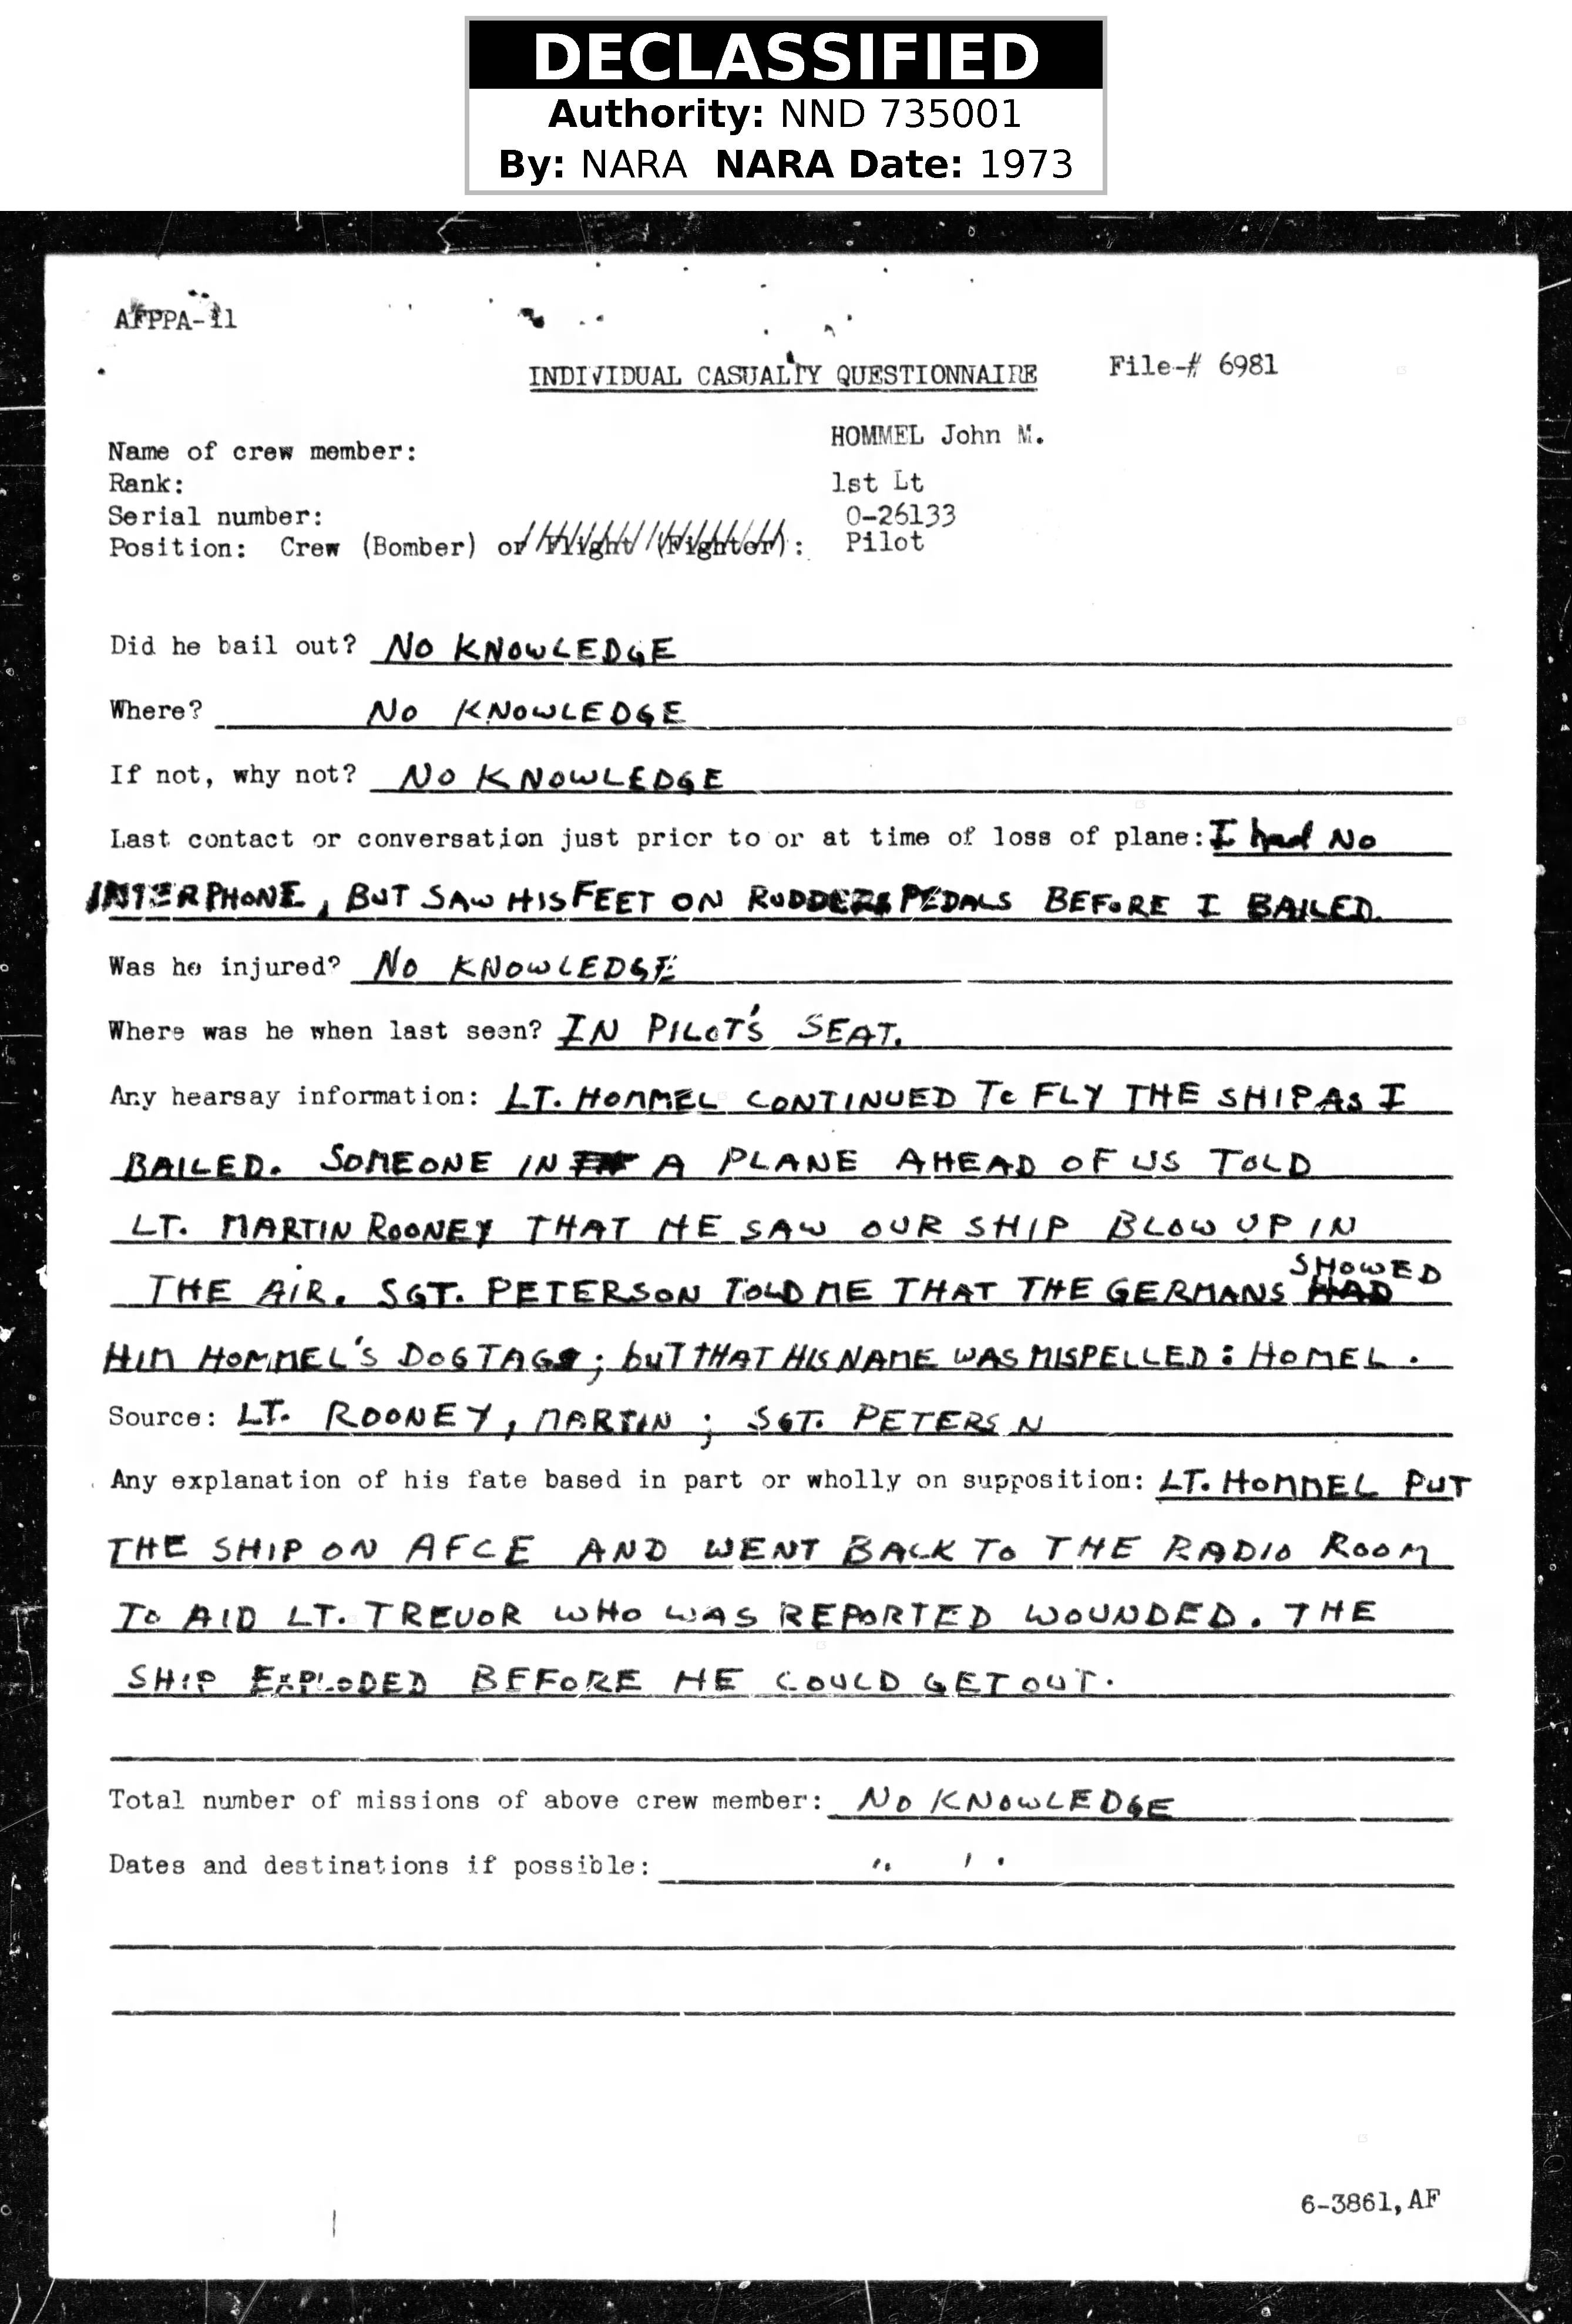 DECLASSIFIED
Authority: NND 735001
By: NARA NARA Date: 1973
AFPPA-11
INDIVIDUAL CASUALTY QUESTIONNAIRE
File-# 6981
Name of crew member: HOMMEL John M.
Rank: 1st Lt
Serial number: O-26133
Position: Crew (Bomber) or Flight (Fighter): Pilot
Did he bail out? NO KNOWLEDGE
Where? NO KNOWLEDGE
If not, why not? NO KNOWLEDGE
Last contact or conversation just prior to or at time of loss of plane: I had No
INTERPHONE, BUT SAW HIS FEET ON RUDDER PEDALS BEFORE I BAILED.
Was he injured? NO KNOWLEDGE
Where was he when last seen? IN PILOT'S SEAT.
Any hearsay information: LT. HOMMEL CONTINUED TO FLY THE SHIP AS I
BAILED. SOMEONE IN A PLANE AHEAD OF US TOLD
LT. MARTIN ROONEY THAT HE SAW OUR SHIP BLOW UP IN
THE AIR. SGT. PETERSON TOLD ME THAT THE GERMANS HAD SHOWED
HIM HOMMEL'S DOGTAGS; bUT THAT HIS NAME WAS MISPELLED: HOMEL.
Source: LT. ROONEY, MARTIN; SGT. PETERS N
Any explanation of his fate based in part or wholly on supposition: LT. HOMMEL PUT
THE SHIP ON AFCE AND WENT BACK TO THE RADIO ROOM
TO AID LT. TREVOR WHO WAS REPORTED WOUNDED. THE
SHIP EXPLODED BEFORE HE COULD GET OUT.
Total number of missions of above crew member: NO KNOWLEDGE
Dates and destinations if possible: " "
6-3861, AF